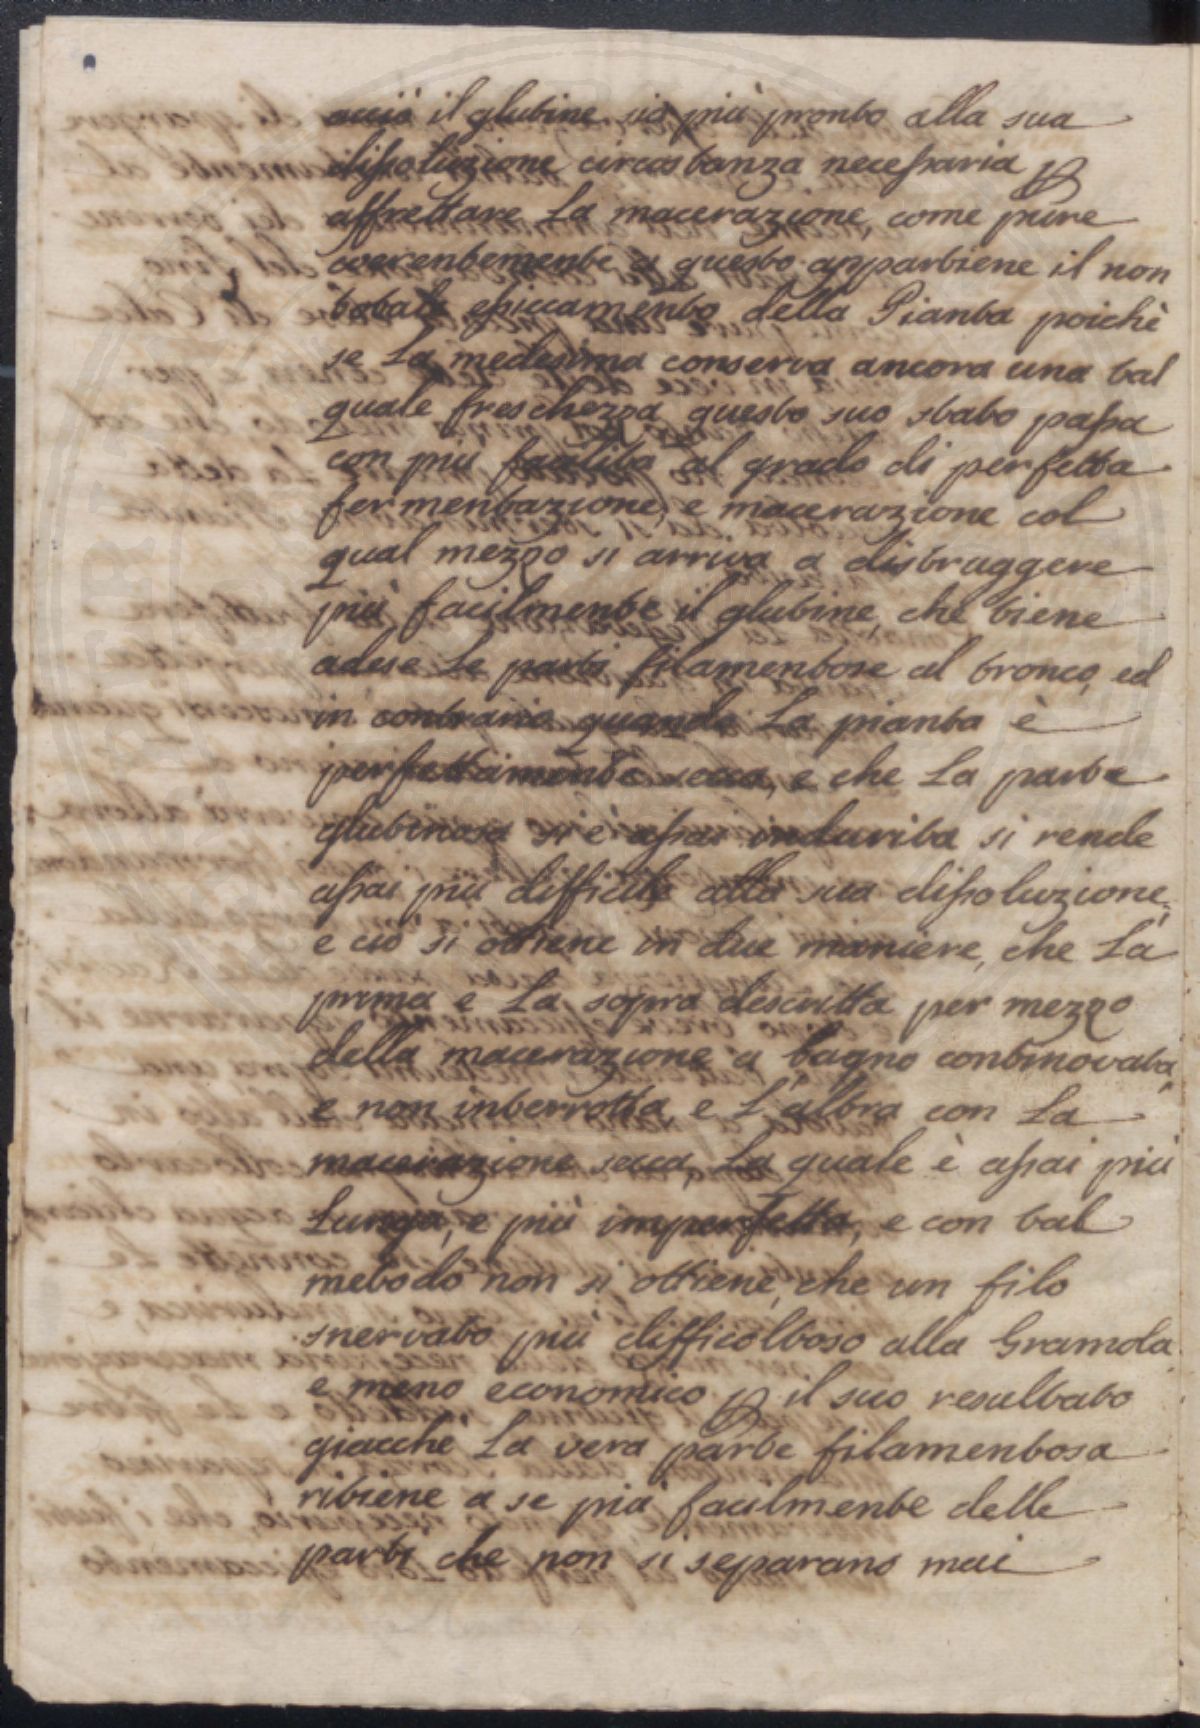 acciò il glutine sia più pronto alla sua
dissoluzione circostanza necessaria ꝑ
affrettare La macerazione, come pure
coerentemente a questo appartiene il non
totale essiccamento della Pianta poichè
se La medesima conserva ancora una tal
quale freschezza questo suo stato passa
con più facilità al grado di perfetta
fermentazione, e macerazione col
qual mezzo si arriva a distruggere
più facilmente il glutine, che tiene
adese Le parti filamentose al tronco, ed
in contrario quando La pianta è
perfettamente secca, e che La parte
glutinosa si è assai indurita si rende
assai più difficile alla sua dissoluzione,
e ciò si ottiene in due maniere, che La
prima e La sopra descritta per mezzo
della macerazione a bagno continovata,
e non interrotta, e L'altra con La
macerazione secca, La quale è assai più
Lunga, e più imperfetta, e con tal
metodo non si ottiene, che un filo
snervato più difficoltoso alla Gramola
e meno economico ꝑ il suo resultato
giacche La vera parte filamentosa
ritiene a se più facilmente delle
parti che non si separano mai